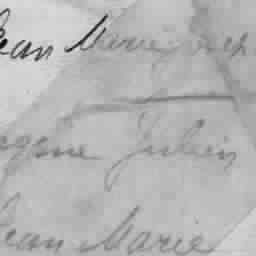 Jean Marie
Eugene Julien
Jean Marie